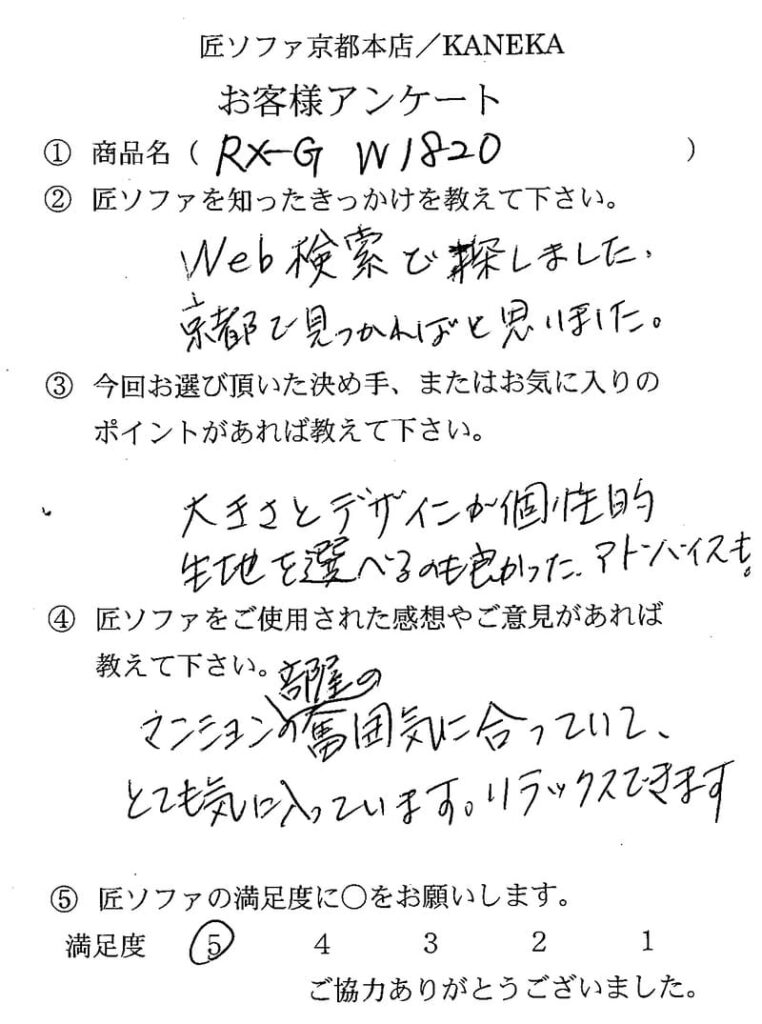 匠ソファ京都本店／KANEKA
お客様アンケート
① 商品名（ RX-G W1820 ）
② 匠ソファを知ったきっかけを教えて下さい。
Web検索で探しました、
京都で見つかればと思いました。
③ 今回お選び頂いた決め手、またはお気に入りの
ポイントがあれば教えて下さい。
大きさとデザインが個性的
生地を選べるのも良かった、アドバイスも。
④ 匠ソファをご使用された感想やご意見があれば
教えて下さい。
部屋の
マンションの雰囲気に合っていて、
とても気に入っています。リラックスできます
⑤ 匠ソファの満足度に○をお願いします。
満足度 5 4 3 2 1
ご協力ありがとうございました。